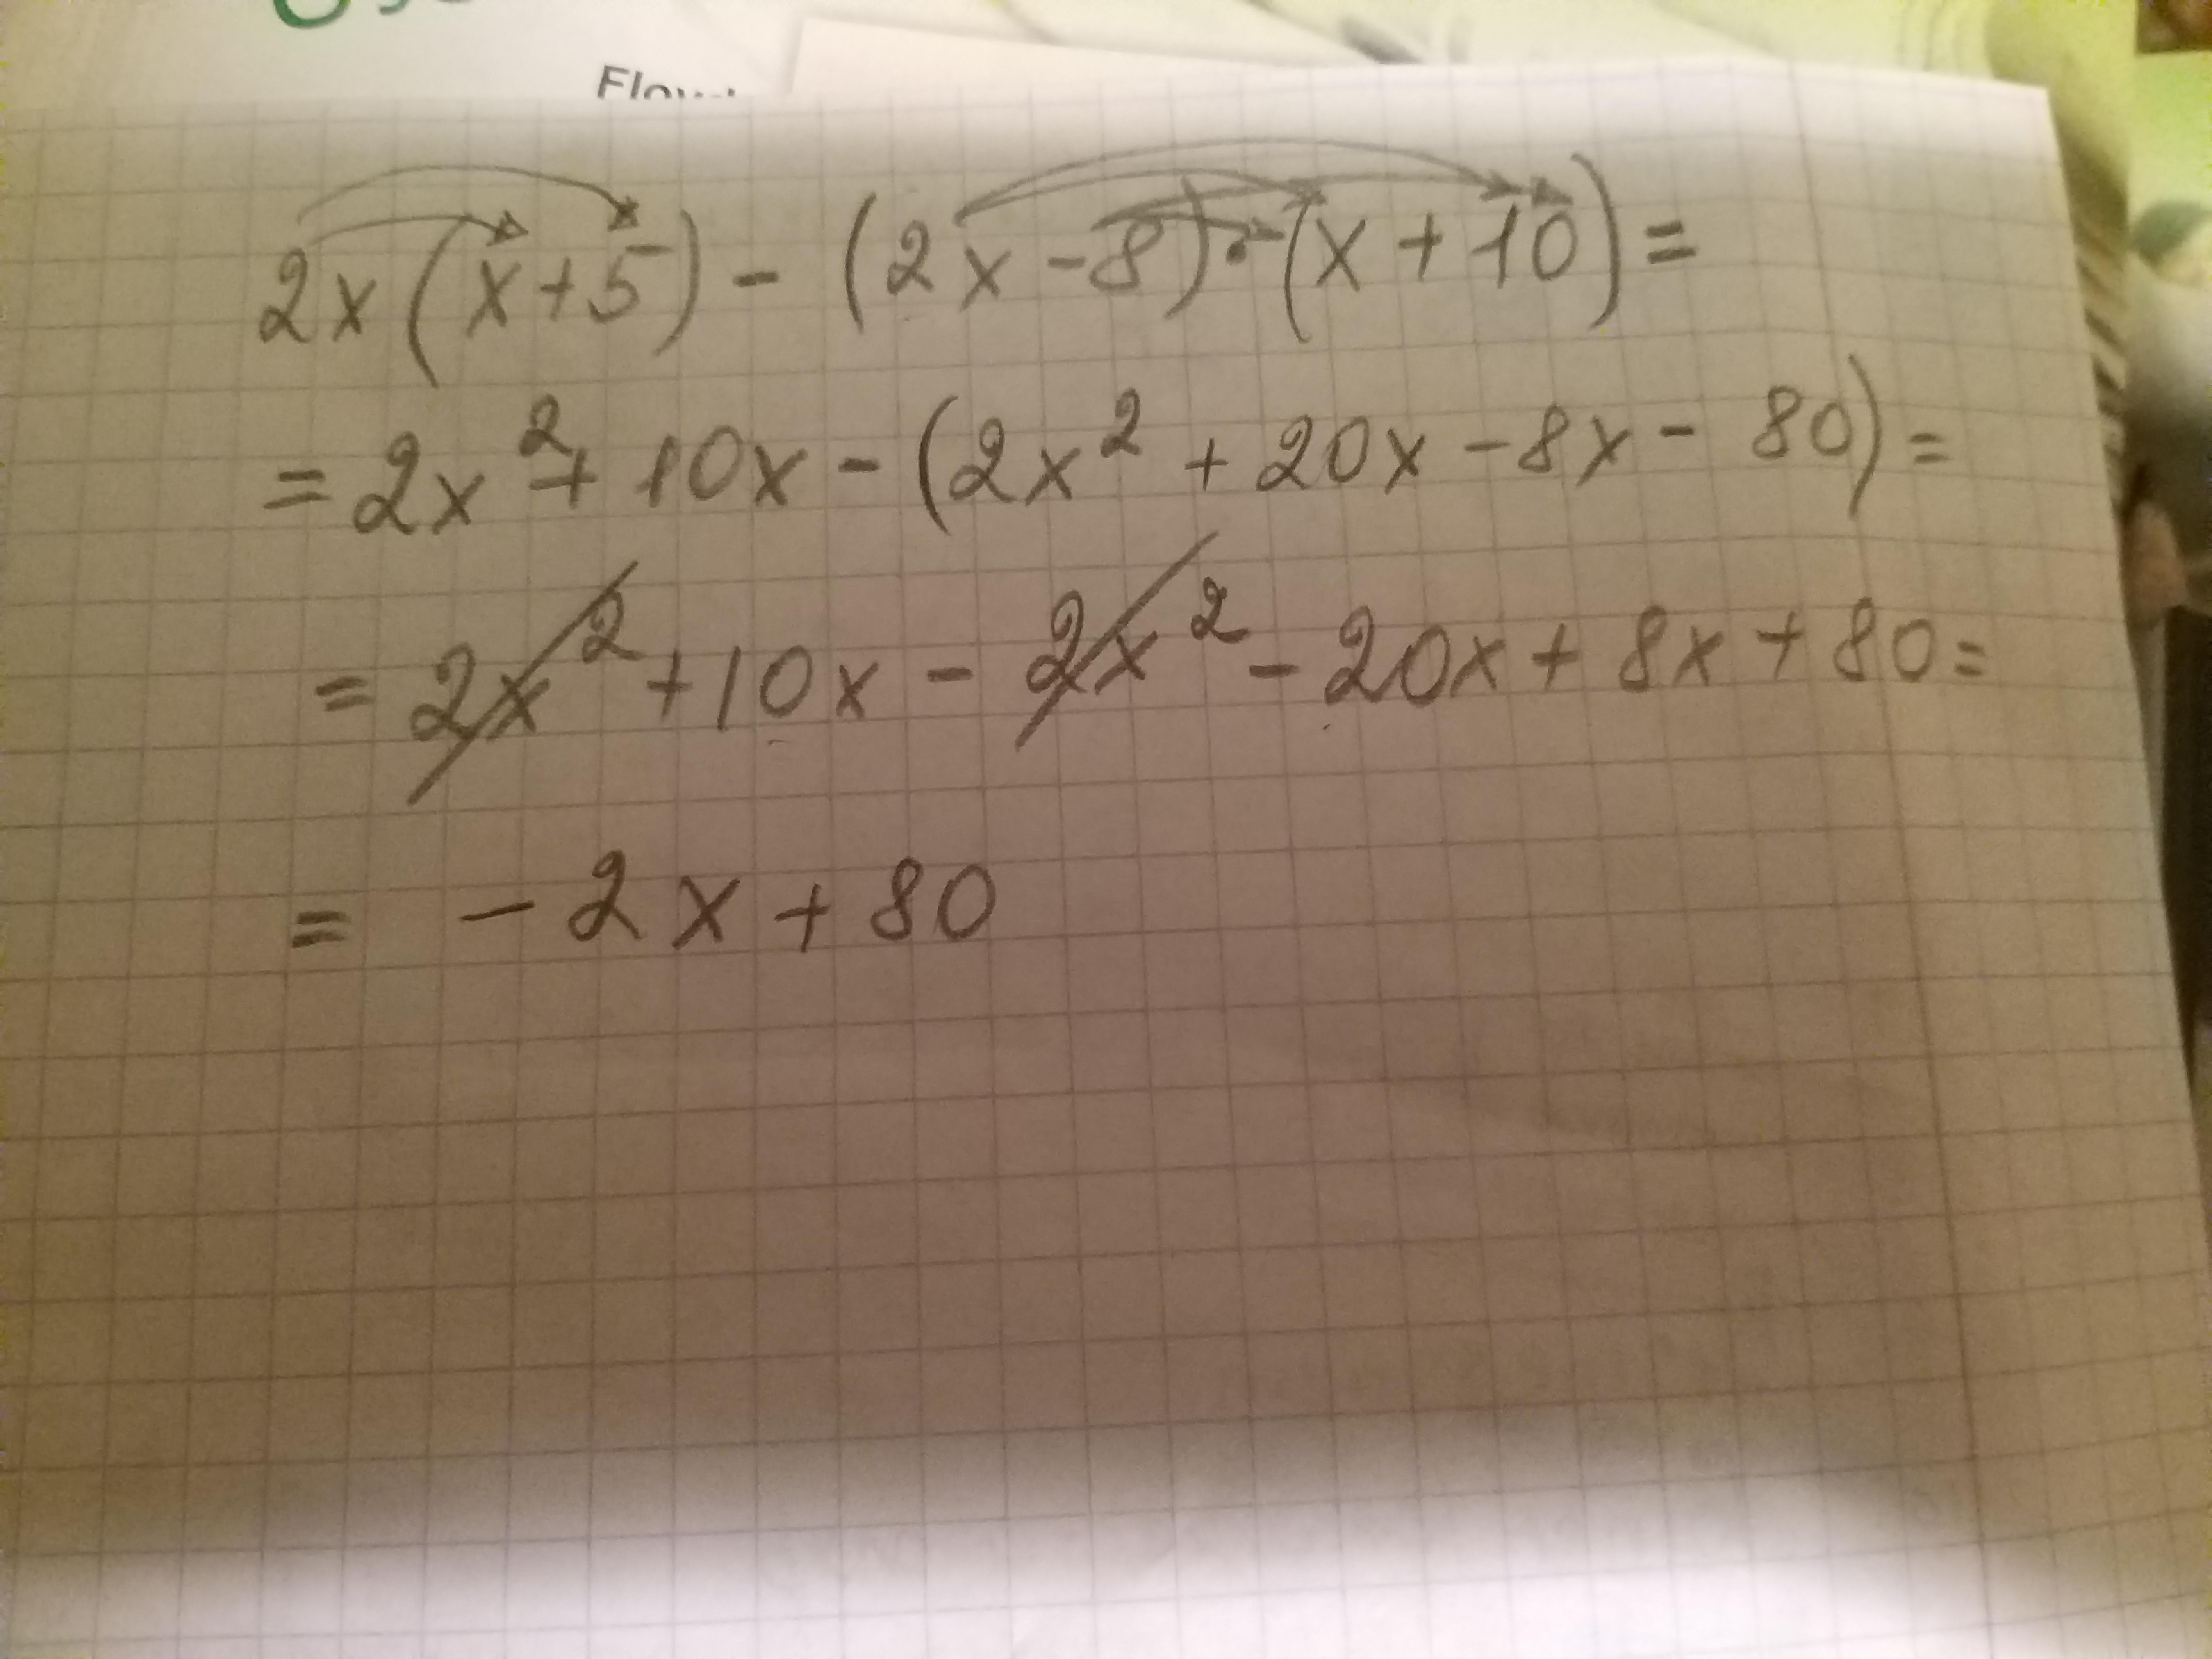 2x(x+5) - (2x-8)·(x+10)=
= 2x² + 10x - (2x² + 20x - 8x - 80) =
= 2x² + 10x - 2x² - 20x + 8x + 80 =
= - 2x + 80